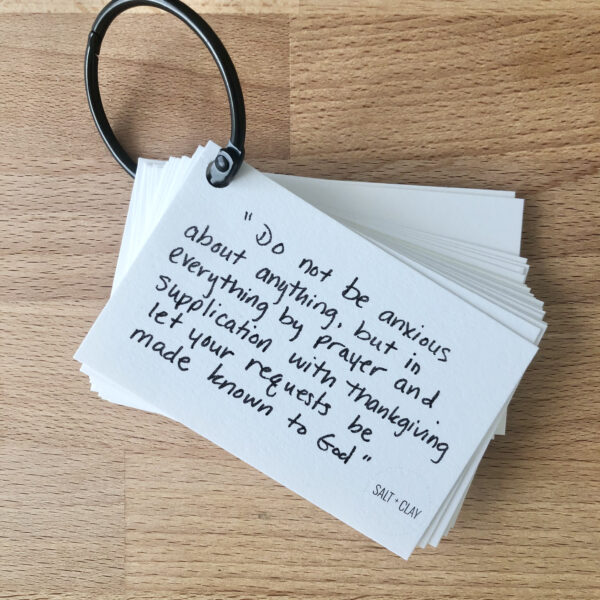 "Do not be anxious
about anything, but in
everything by prayer and
supplication with thankgiving
let your requests be
made known to God"
SALT + CLAY